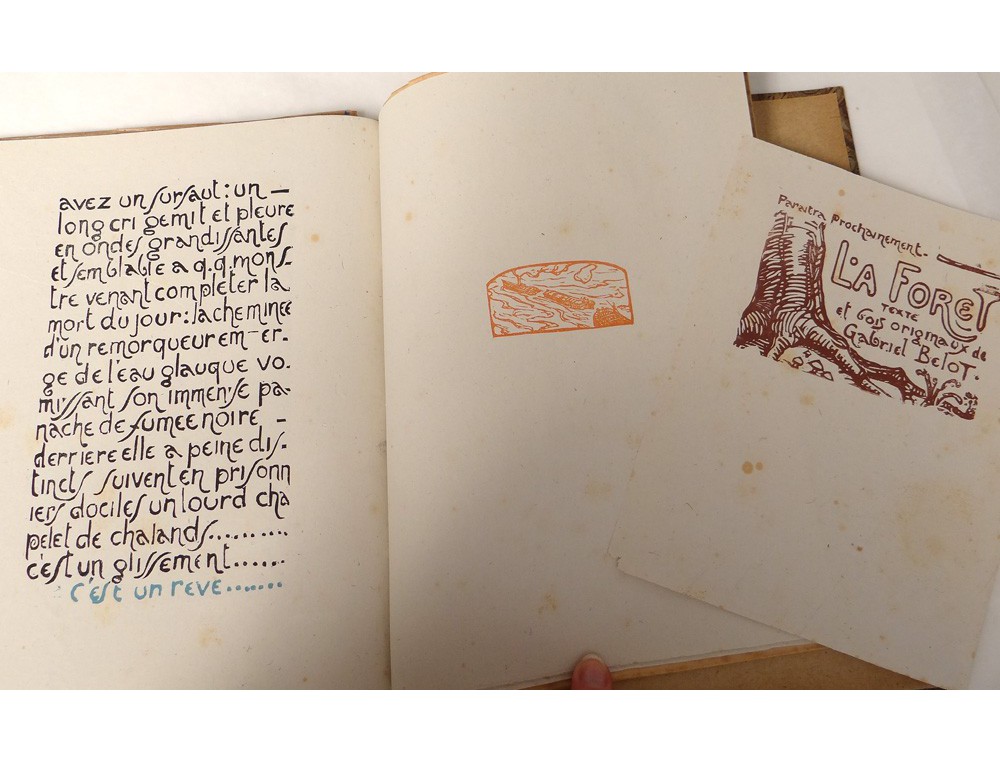 avez un sursaut : un —
long cri gemit et pleure
en ondes grandissantes
et semblable a q.q. mons-
tre venant completer la
mort du jour : la cheminee
d'un remorqueur em-er-
ge de l'eau glauque vo-
missant son immense pa-
nache de fumee noire -
derriere elle a peine dis-
tincts suivent en prisonn
iers dociles un lourd cha
pelet de chalands..........
c'est un glissement......
c'est un reve.......
Paraitra prochainement.
LA FORET
TEXTE
et bois originaux de
Gabriel Belot.